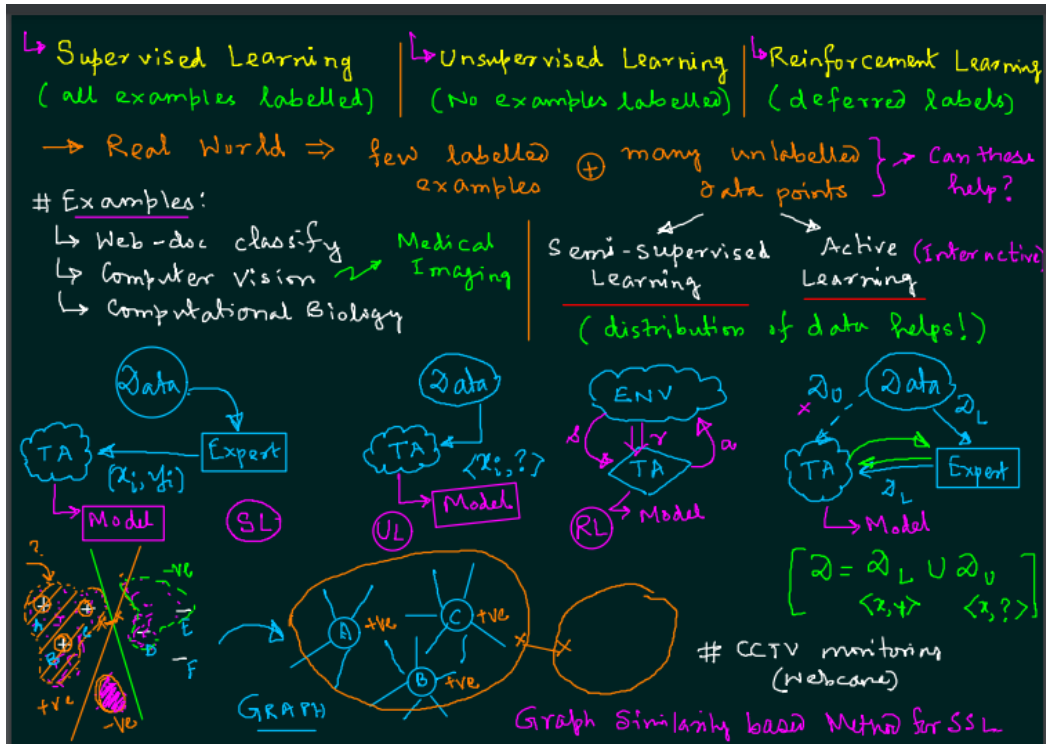 ↳ Supervised Learning
(all examples labelled)
↳ Unsupervised Learning
(No examples labelled)
↳ Reinforcement Learning
(deferred labels)
→ Real World ⇒ few labelled examples ⊕ many unlabelled data points } → Can these help?
# Examples:
↳ Web-doc classify
↳ Computer Vision
Medical Imaging
↳ Computational Biology
Semi-supervised Learning
Active (Interactive)
Learning
(distribution of data helps!)
Data
TA
Expert
[xi, yi]
Model
SL
Data
TA
<xi, ?>
Model
UL
ENV
s
r
a
TA
RL
→ Model
D_U
Data
×
D_L
TA
Expert
D_L
↳ Model
[D = D_L ∪ D_U
<x,y> <x,?>]
?
-ve
+
+
+
A
B
C
-
-
E
D
- F
+ve
-ve
GRAPH
A
+ve
C
+ve
B
+ve
×
×
# CCTV monitoring
(Webcane)
Graph Similarity based Method for SSL